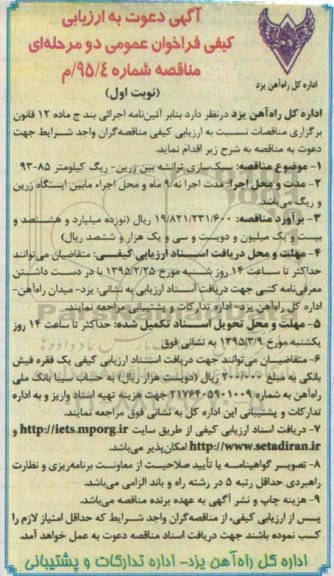 آگهی دعوت به ارزیابی
کیفی فراخوان عمومی دو مرحله‌ای
مناقصه شماره ۹۵/۴/م
(نوبت اول)
اداره کل راه‌آهن یزد
اداره کل راه‌آهن یزد درنظر دارد بنابر آئین‌نامه اجرائی بند ج ماده ۱۲ قانون
برگزاری مناقصات نسبت به ارزیابی کیفی مناقصه‌گران واجد شرایط جهت
دعوت به مناقصه به شرح زیر اقدام نماید.
۱- موضوع مناقصه: سبک‌سازی ترانشه بین زرین- ریگ کیلومتر ۸۵-۹۳
۲- مدت و محل اجرا: مدت اجرا نه/۹ ماه و محل اجراء مابین ایستگاه زرین
و ریگ می‌باشد.
۳- برآورد مناقصه: ۱۹/۸۲۱/۲۳۱/۶۰۰ ریال (نوزده میلیارد و هشتصد و
بیست و یک میلیون و دویست و سی و یک هزار و ششصد ریال)
۴- مهلت و محل دریافت اسناد ارزیابی کیفی: متقاضیان می‌توانند
حداکثر تا ساعت ۱۴ روز شنبه مورخ ۱۳۹۵/۲/۲۵ با در دست داشتن
معرفی‌نامه کتبی جهت دریافت اسناد ارزیابی به نشانی: یزد- میدان راه‌آهن-
اداره کل راه‌آهن یزد- اداره تدارکات و پشتیبانی مراجعه نمایند.
۵- مهلت و محل تحویل اسناد تکمیل شده: حداکثر تا ساعت ۱۴ روز
یکشنبه مورخ ۱۳۹۵/۳/۹ به نشانی فوق
۶- متقاضیان می‌توانند جهت دریافت اسناد ارزیابی کیفی یک فقره فیش
بانکی به مبلغ ۲۰۰/۰۰۰ ریال (دویست هزار ریال) به حساب سیبا بانک ملی
راه‌آهن به شماره ۲۱۷۶۴۰۵۹۰۱۰۰۹ جهت هزینه تهیه اسناد واریز و به اداره
تدارکات و پشتیبانی این اداره کل به نشانی فوق مراجعه نمایند.
۷- دریافت اسناد ارزیابی کیفی از طریق سایت http://iets.mporg.ir و
http://www.setadiran.ir امکان‌پذیر می‌باشد.
۸- تصویر گواهینامه یا تأیید صلاحیت از معاونت برنامه‌ریزی و نظارت
راهبردی حداقل رتبه ۵ در رشته راه و باند الزامی می‌باشد.
۹- هزینه چاپ و نشر آگهی به عهده برنده مناقصه می‌باشد.
پس از ارزیابی کیفی، از مناقصه‌گران واجد شرایط که حداقل امتیاز لازم را
کسب نموده باشند جهت دریافت اسناد مناقصه دعوت به عمل خواهد آمد.
اداره کل راه‌آهن یزد- اداره تدارکات و پشتیبانی